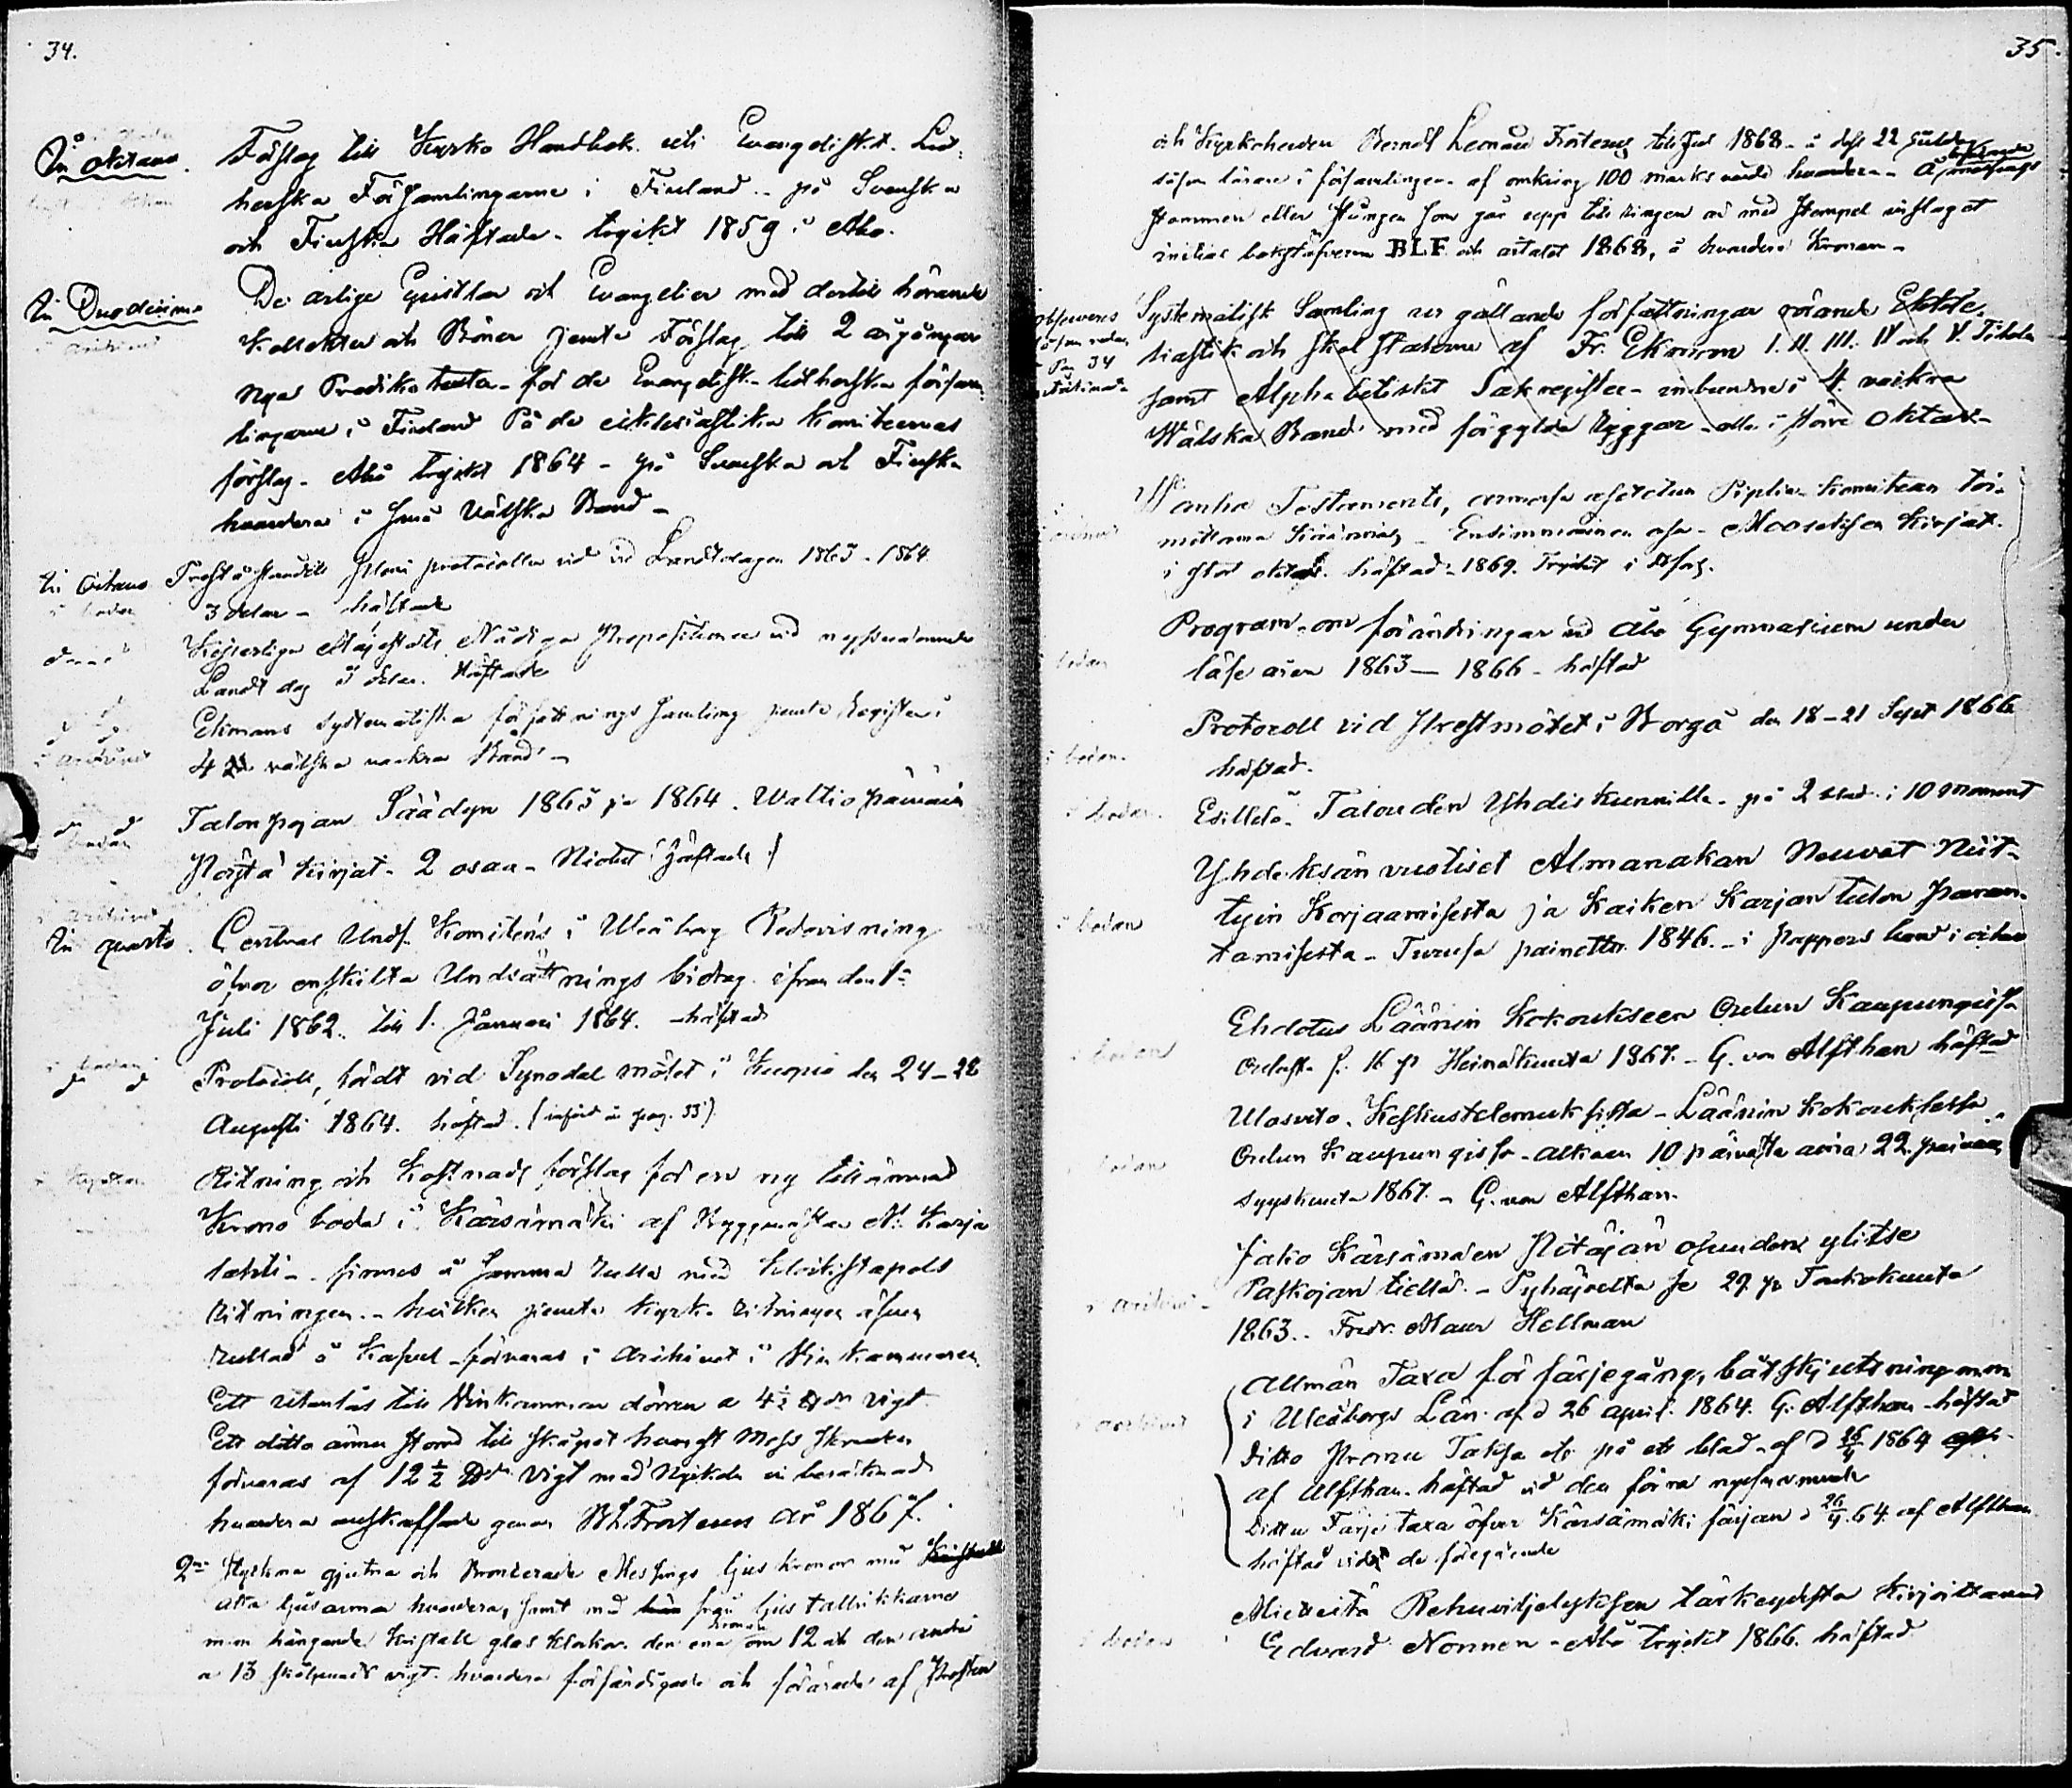 34.
In oktavo. Förslag till Kyrko Handbok uti Evangeliskt Lut-
herska Församlingarne i Finland - på Svenska
och Finska Häftade - tryckt 1859 i Åbo.
In Duodecimo De årliga Epistlar och Evangelier med dertill hörande
i Archivet Kollekter och Böner jemte Förslag till 2 årgångar
nya Prediko texter - för de Evangelisk-lutherska försam-
lingarne i Finland På de ecklesiastika komiteernas
förslag - Åbo tryckt 1864 - på Svenska och Finska
hvardera i små Välska Band -
In Octavo Preste ståndets protocoller vid Landtdagen 1863 - 1864
i bodan 3 delar - häftade
Kejserliga Majestäts Nådiga Propositioner vid nyssnämnde
Landt dag 3 delar. häftade
Ekmans systematiska författnings samling jemte Register i
i archivet 4 välska vackra Band -
Talonpojan Säädyn 1863 ja 1864 Waltiopäiväin
bodan Pöytä kirjat - 2 osaa - Nidotut (häftade)
i Archivet
In quarto. Central Unds. Komitens i Uleåborg Redovisning
öfver enskilta Undsättnings bidrag ifrån den 1
Juli 1862. till 1. Januari 1864. - häftad
i bodan Protocoll, hådt vid Synodal mötet i Kuopio den 24-28
d d Augusti 1864. häftad. (införd å pag. 33)
Ritning och Kostnads förslag för en ny tillämnad
Krono boda i Kärsämäki af Byggmästar Karja
lahti - finnes å samma rulla med klockstapels
ritningen - hvilken jemte kyrk ritningen äfven
rullad å kafvel - förvaras i Archivet i Vin kammaren.
Ett utanlås till Vinkammar dörren a 4½ vigt
Ett ditto ännu större till skåpet hvarest Mess skruden
förvaras af 12½ vigt med Nyckeln beräknad
hvardera anskaffade genom Frosterus år 1867.
2ne Stycken gjutna och Bronserade Messings ljus kronor med
åtta ljusarmar hvardera, samt med från ljus tallrikkarne
m.m. hängande kristall glas klockor. den ena kronan om 12 och den andra
a 13 skålpunds vigt - hvardera förfärdigade och förärade af Prosten
35.
och Kyrkoherden Berndt Leonard Frosterus till Jul 1868 -
såsom lärare i församlingen - af omkring 100 marks värde hvardera -
stammen eller stången som går upp till ringen är med stempel inslaget
initial bokstäfverna BLF och årtalet 1868, å hvardera Kronan -
observeras Systematisk Samling utaf gällande författningar rörande Eckle-
såsom redan siastik och Skol Staterne af Fr. Ekman I. II. III. IV och V. Titeln
Pag 34 samt Alphabetiskt Sakregister - inbundne i 4 vackra
antecknade Wälska Band med förgylda ryggar - alla i större Oktav -
Wanha Testamenti, armosta asetetun Piplia-Komitean toi-
mittama Käännös - Ensimmäinen osa - Mooseksen kirjat
i stor oktav. häftad - 1869. Tryckt i H:fors.
Program om förändringar vid Åbo Gymnasium under
bodan läse åren 1863 - 1866 - häftad
Protocoll vid Prestmötet i Borgå den 18-21 Sept 1866
i bodan. häftad.
i bodan. Talouden Yhdiskunnille - på 2 blad i 10 Moment
Yhdeksän vuotiset Almanakan Neuvot Niit-
i bodan tyin Korjaamisesta ja Kaiken Karjan tulon paran-
tamisesta - Turusa painettu 1846. - i Pappers band
Ehdotus Läänin Kokoukseen Oulun Kaupungissa
i bodan Oulusta s. 16 p. Heinäkuuta 1867. - G. von Alfthan häftad
Ulosveto. Keskustelemuksista - Läänin Kokouksessa
bodan Oulun Kaupungissa - alkaen 10 päivästä aina 22 päivään
syyskuuta 1867. - G. von Alfthan.
Jako Kärsämäen Pitäjän osuuden ylitse
Paskojan tiellä. - Pyhäjoelta se 29 p. Toukokuuta
i archivet - 1863. - Fredr. Maur. Hellman
Allmän Taxa för färjegång, båtskjutsning m.m.
i archivet i Uleåborgs Län. af d 26 april. 1864. G. Alfthan - häftad
Ditto Promu Taksa etc på ett blad - af d 26/4 1864
af Alfthan. häftad vid den förra nyssnämnde
Ditto Färje taxa öfver Kärsämäki färjan d 26/4 64. af Alfthan.
häftad vid de föregående
Mietteitä Rahaviljelyksen tärkeydestä kirjoittanut
i bodan Edvard Nonnen - Åbo tryckt 1866. häftad